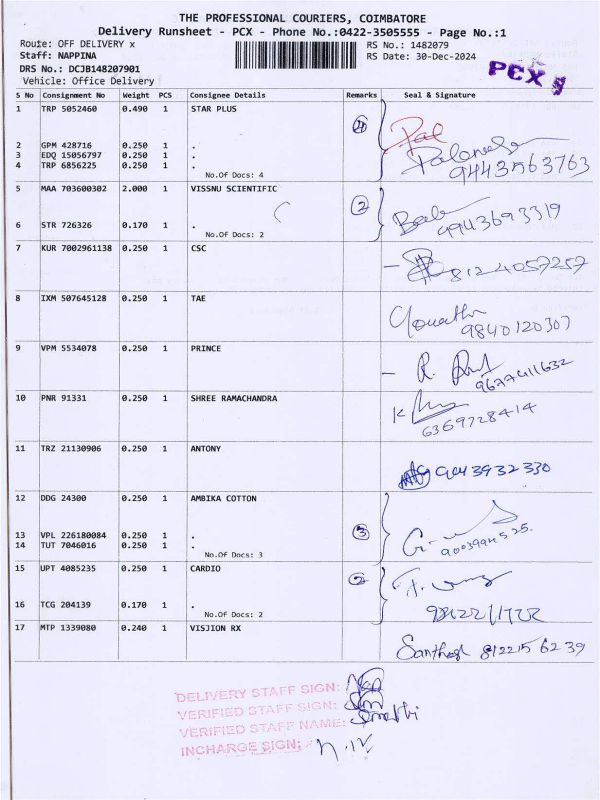 THE PROFESSIONAL COURIERS, COIMBATORE
Delivery Runsheet - PCX - Phone No.:0422-3505555 - Page No.:1
Route: OFF DELIVERY x
RS No.: 1482079
Staff: NAPPINA
RS Date: 30-Dec-2024
DRS No.: DCJB148207901
Vehicle: Office Delivery
PCX
S No Consignment No Weight PCS Consignee Details Remarks Seal & Signature
1 TRP 5052460 0.490 1 STAR PLUS
4
2 GPM 428716 0.250 1 .
3 EDQ 15056797 0.250 1 .
4 TRP 6856225 0.250 1 .
No.Of Docs: 4
9443563763
5 MAA 703600302 2.000 1 VISSNU SCIENTIFIC
2
6 STR 726326 0.170 1 .
No.Of Docs: 2
9943693319
7 KUR 7002961138 0.250 1 CSC
8124057257
8 IXM 507645128 0.250 1 TAE
9840120307
9 VPM 5534078 0.250 1 PRINCE
9677411632
10 PNR 91331 0.250 1 SHREE RAMACHANDRA
6369728414
11 TRZ 21130906 0.250 1 ANTONY
9043932330
12 DDG 24300 0.250 1 AMBIKA COTTON
3
13 VPL 226180084 0.250 1 .
14 TUT 7046016 0.250 1 .
No.Of Docs: 3
15 UPT 4085235 0.250 1 CARDIO
2
16 TCG 204139 0.170 1 .
No.Of Docs: 2
17 MTP 1339080 0.240 1 VISJION RX
Santhosh 8122156239
DELIVERY STAFF SIGN:
VERIFIED STAFF SIGN:
VERIFIED STAFF NAME:
INCHARGE SIGN: